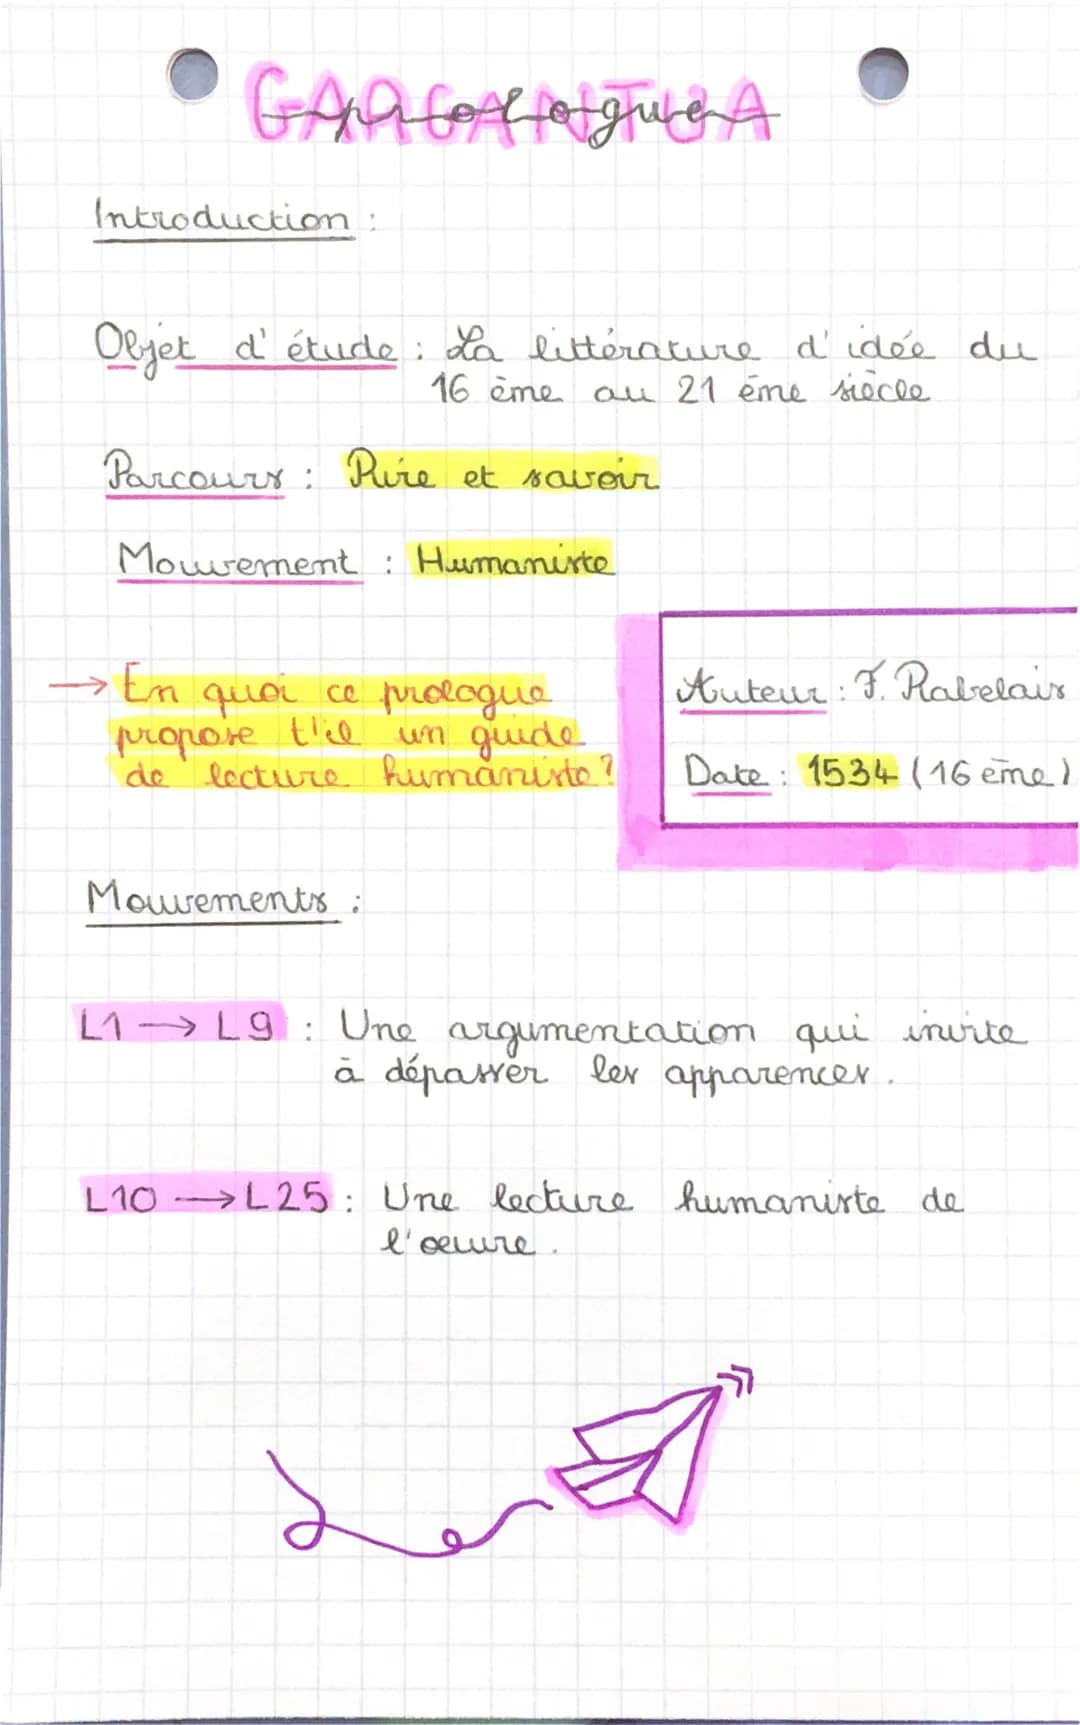 GARGANTUA
prologue
Introduction :
Objet d'étude : La littérature d'idée du
16 ème au 21 ème siècle
Parcours : Rire et savoir
Mouvement : Humaniste
→ En quoi ce prologue
propose t'il un guide
de lecture humaniste ?
Auteur : F. Rabelais
Date : 1534 (16 ème)
Mouvements :
L1 → L9 : Une argumentation qui invite
à dépasser les apparences.
L10 → L25 : Une lecture humaniste de
l'œuvre.